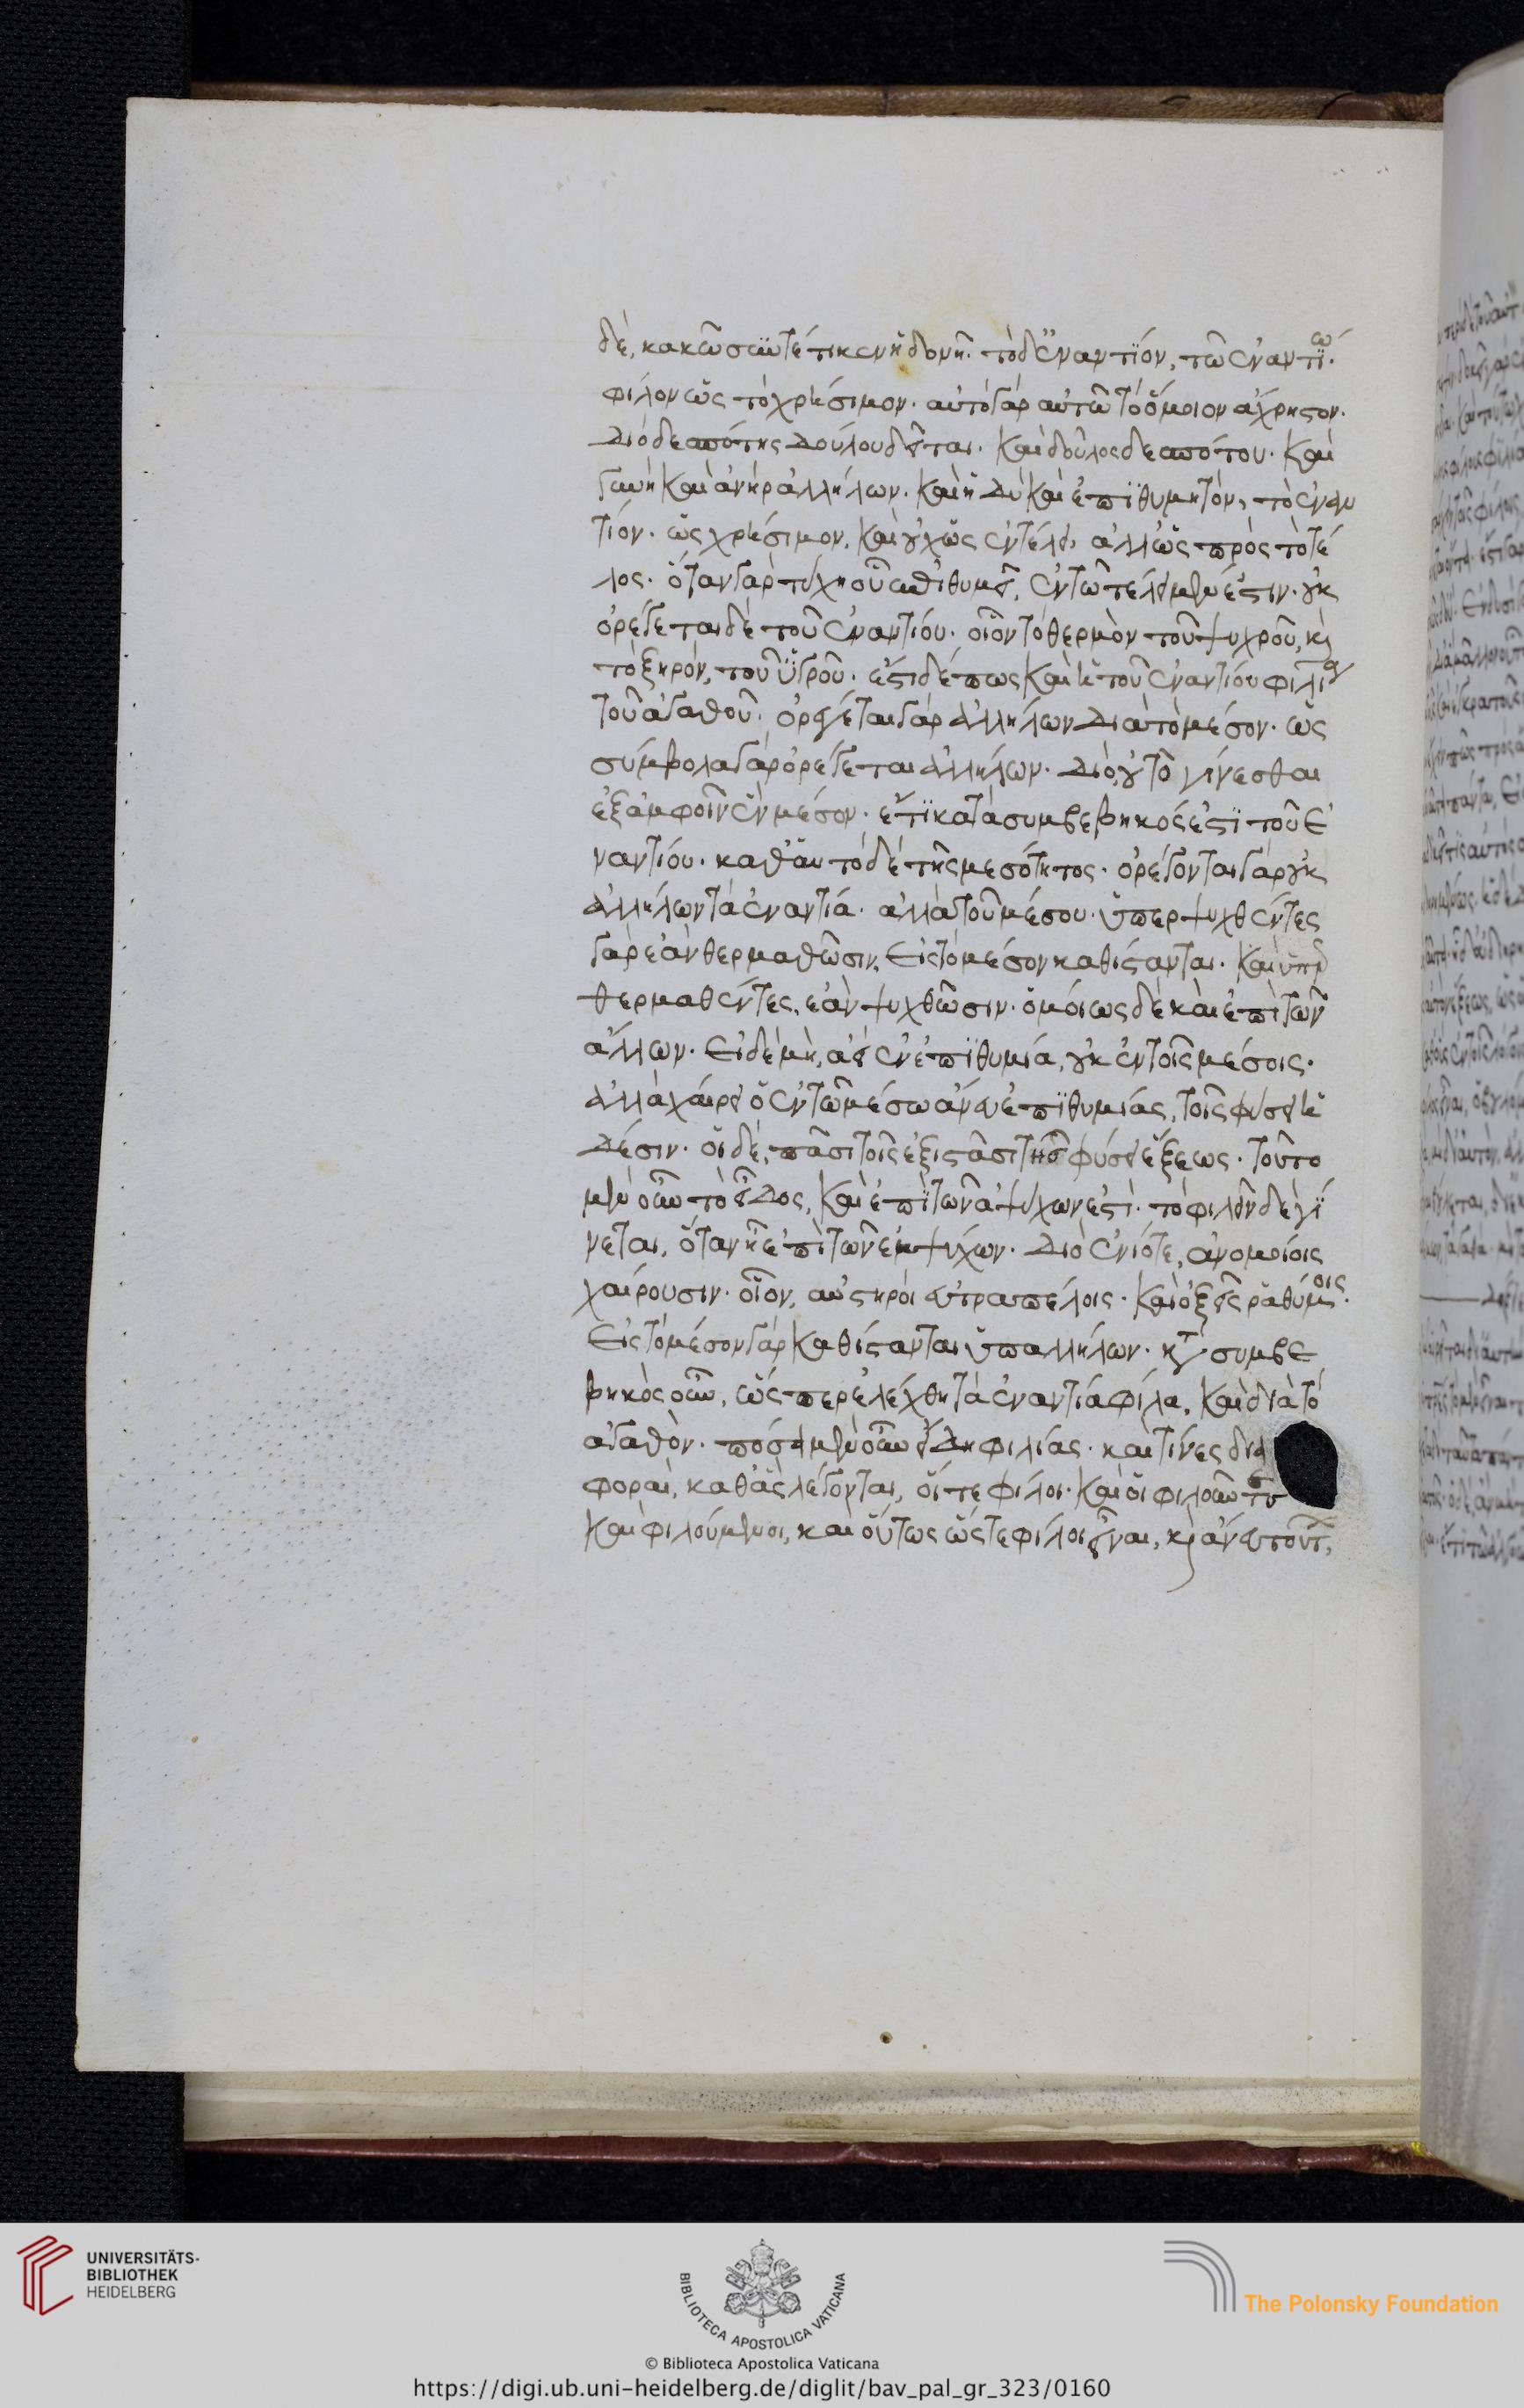 δὲ, κακῶς αὐτέ τικενἡδονῆ. τὸ δ' ἐναντΐον, τῶ ἐναντΐω.
φίλον ὡς τὸ χρήσιμον. αὐτὸ γὰρ αὑτῶ τὸ ὅμοιον ἄχρηστον.
διὸ δεσπότης δούλου δεῖται. καὶ δοῦλος δεσπότου. καὶ
γυνὴ καὶ ἀνὴρ ἀλλήλων. καὶ ἡδὺ καὶ ἐπϊθυμητὸν, τὸ ἐναν
τίον. ὡς χρήσιμον. καὶ οὐχ ὡς ἐν τέλει. ἀλλ' ὡς πρὸς τὸ τέ
λος. ὅταν γὰρ τύχη οὗ ἐπιθυμεῖ, ἐν τῶ τέλει μέν ἐστιν. οὐκ
ὀρέγεται δὲ τοῦ ἐναντίου. οἷον τὸ θερμὸν τοῦ ψυχροῦ, καὶ
τὸ ξηρὸν, τοῦ ὑγροῦ. ἔστι δέ πως καὶ ἡ τοῦ ἐναντίου φιλία
τοῦ ἀγαθοῦ. ὀρέγεται γὰρ ἀλλήλων διὰ τὸ μέσον. ὡς
σύμβολα γὰρ ὀρέγεται ἀλλήλων. διὸ οὕτω γίνεσθαι
ἐξ ἀμφοῖν ἓν μέσον. ἔτϊ κατὰ συμβεβηκός ἐστϊ τοῦ ἐ
ναντίου. καθ' αὑτὸ δὲ τῆς μεσότητος. ὀρέγονται γὰρ οὐκ
ἀλλήλων τὰ ἐναντία. ἀλλὰ τοῦ μέσου. ὑπερψυχθέντες
γὰρ ἐὰν θερμαθῶσιν, εἰς τὸ μέσον καθίστανται. καὶ ὑπερ
θερμαθέντες, ἐὰν ψυχθῶσιν. ὁμοίως δὲ καὶ ἐπὶ τῶν
ἄλλων. εἰ δὲ μὴ, ἀεὶ ἐν ἐπϊθυμία, οὐκ ἐν τοῖς μέσοις.
ἀλλὰ χαίρει ὁ ἐν τῶ μέσω ἄνευ ἐπϊθυμίας, τοῖς φύσει ἡ
δέσιν. οἱ δὲ, πᾶσι τοῖς ἐξιστᾶσι τῆς φύσει ἕξεως. τοῦτο
μὲν οὖν τὸ εἶδος, καὶ ἐπὶ τῶν ἀψύχων ἐστί. τὸ φιλεῖν δὲ γί
νεται, ὅταν ᾖ ἐπὶ τῶν ἐμψύχων. διὸ ἐνίοτε, ἀνομοίοις
χαίρουσιν. οἷον, αὐστηροὶ εὐτραπέλοις. καὶ ὀξεῖς ῥαθύμοις.
εἰς τὸ μέσον γὰρ καθίστανται ὑπ' ἀλλήλων. κατὰ συμβε
βηκὸς οὖν, ὥσπερ ἐλέχθη τὰ ἐναντία φίλα, καὶ διὰ τὸ
ἀγαθόν. πόσα μὲν οὖν εἴδη φιλίας. καὶ τίνες δια
φοραὶ, καθ' ἃς λέγονται, οἵ τε φίλοι. καὶ οἱ φιλοῦντες
καὶ φιλούμενοι, καὶ οὕτως ὥστε φίλοι εἶναι, καὶ ἄνευ τούτ,
UNIVERSITÄTS-
BIBLIOTHEK
HEIDELBERG
BIBLIOTECA APOSTOLICA VATICANA
The Polonsky Foundation
© Biblioteca Apostolica Vaticana
https://digi.ub.uni-heidelberg.de/diglit/bav_pal_gr_323/0160